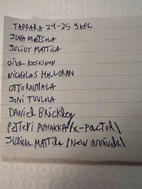 TAPPARA 24-25 9KPL
JUHA MATTILA
JULIUS MATTILA
OIVA KESKINEN
NICHOLAS HALLORAN
OTTO RANTALA
JONI TUULOLA
DANIEL BRICKLEY
PATERI PUHAKKA (X-FACTOR)
JULIUS MATTILA (NEW